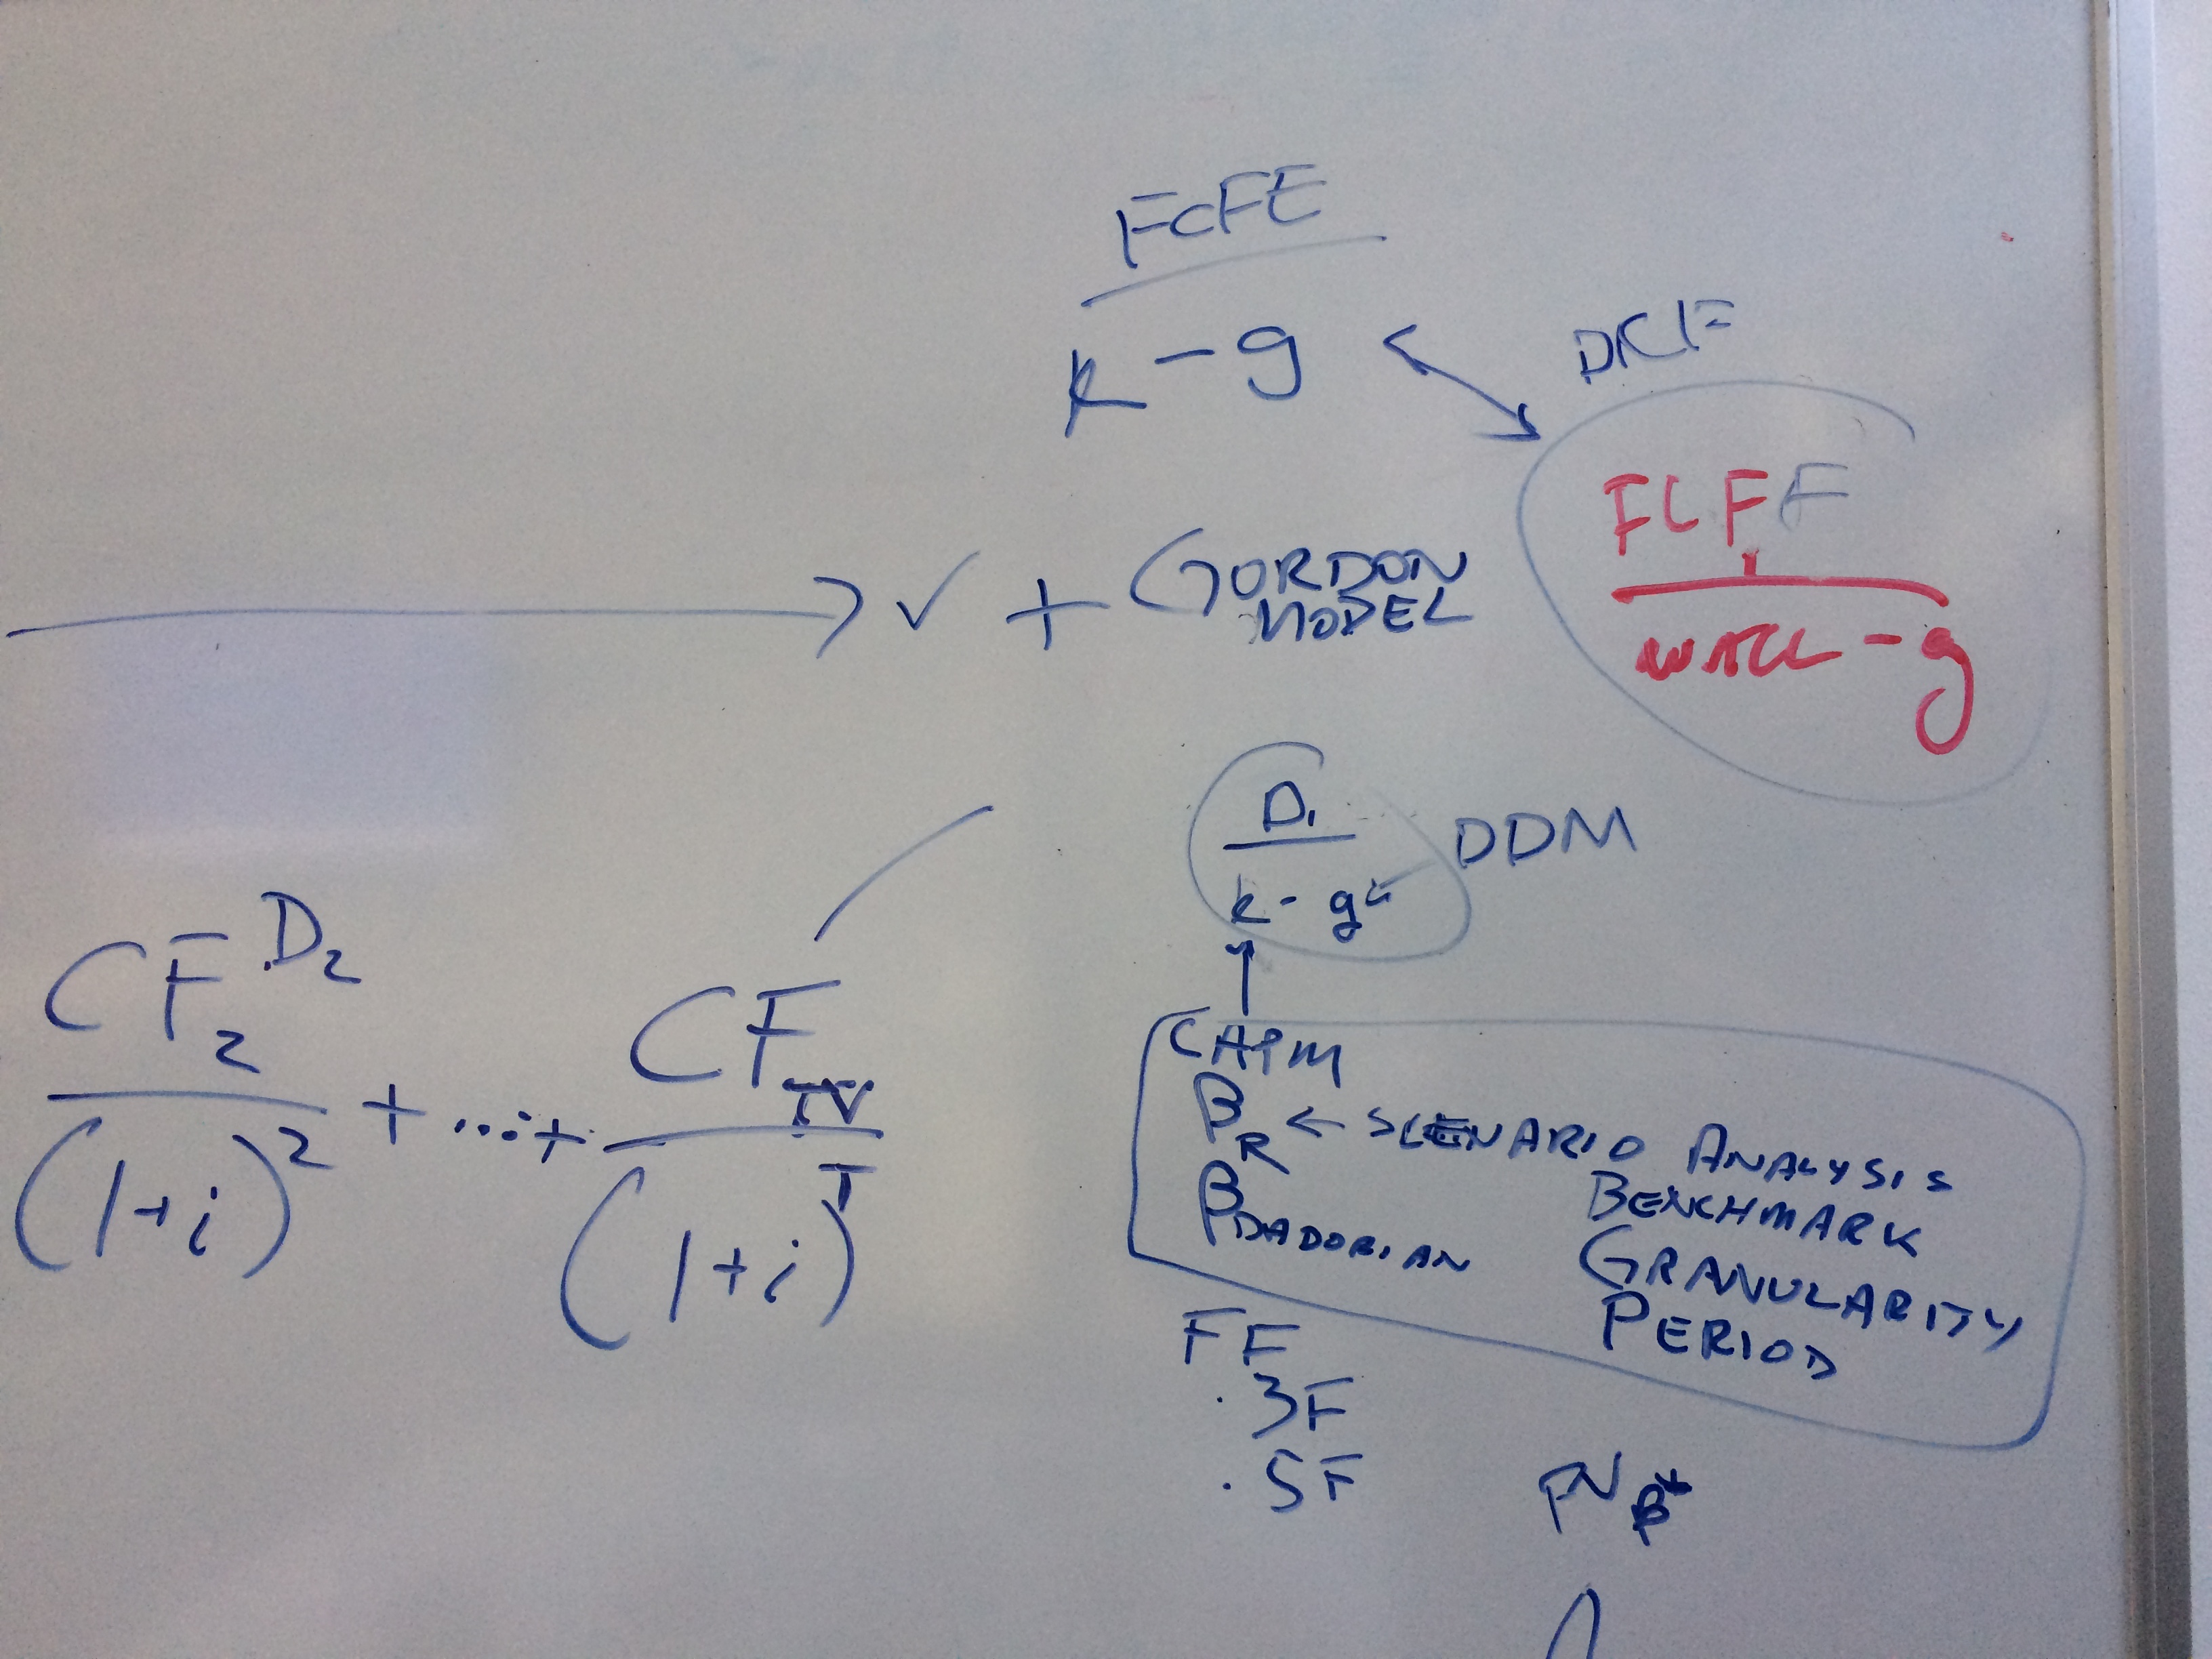 FCFE
k - g
DCF
FCFF
1
WACC - g
✓ + GORDON
MODEL
D1
k - g
DDM
CF2 D2
(1+i)2
+ ... +
CFTV
(1+i)T
CAPM
βR ← SCENARIO ANALYSIS
BENCHMARK
GRANULARITY
PERIOD
FF
. 3F
. 5F